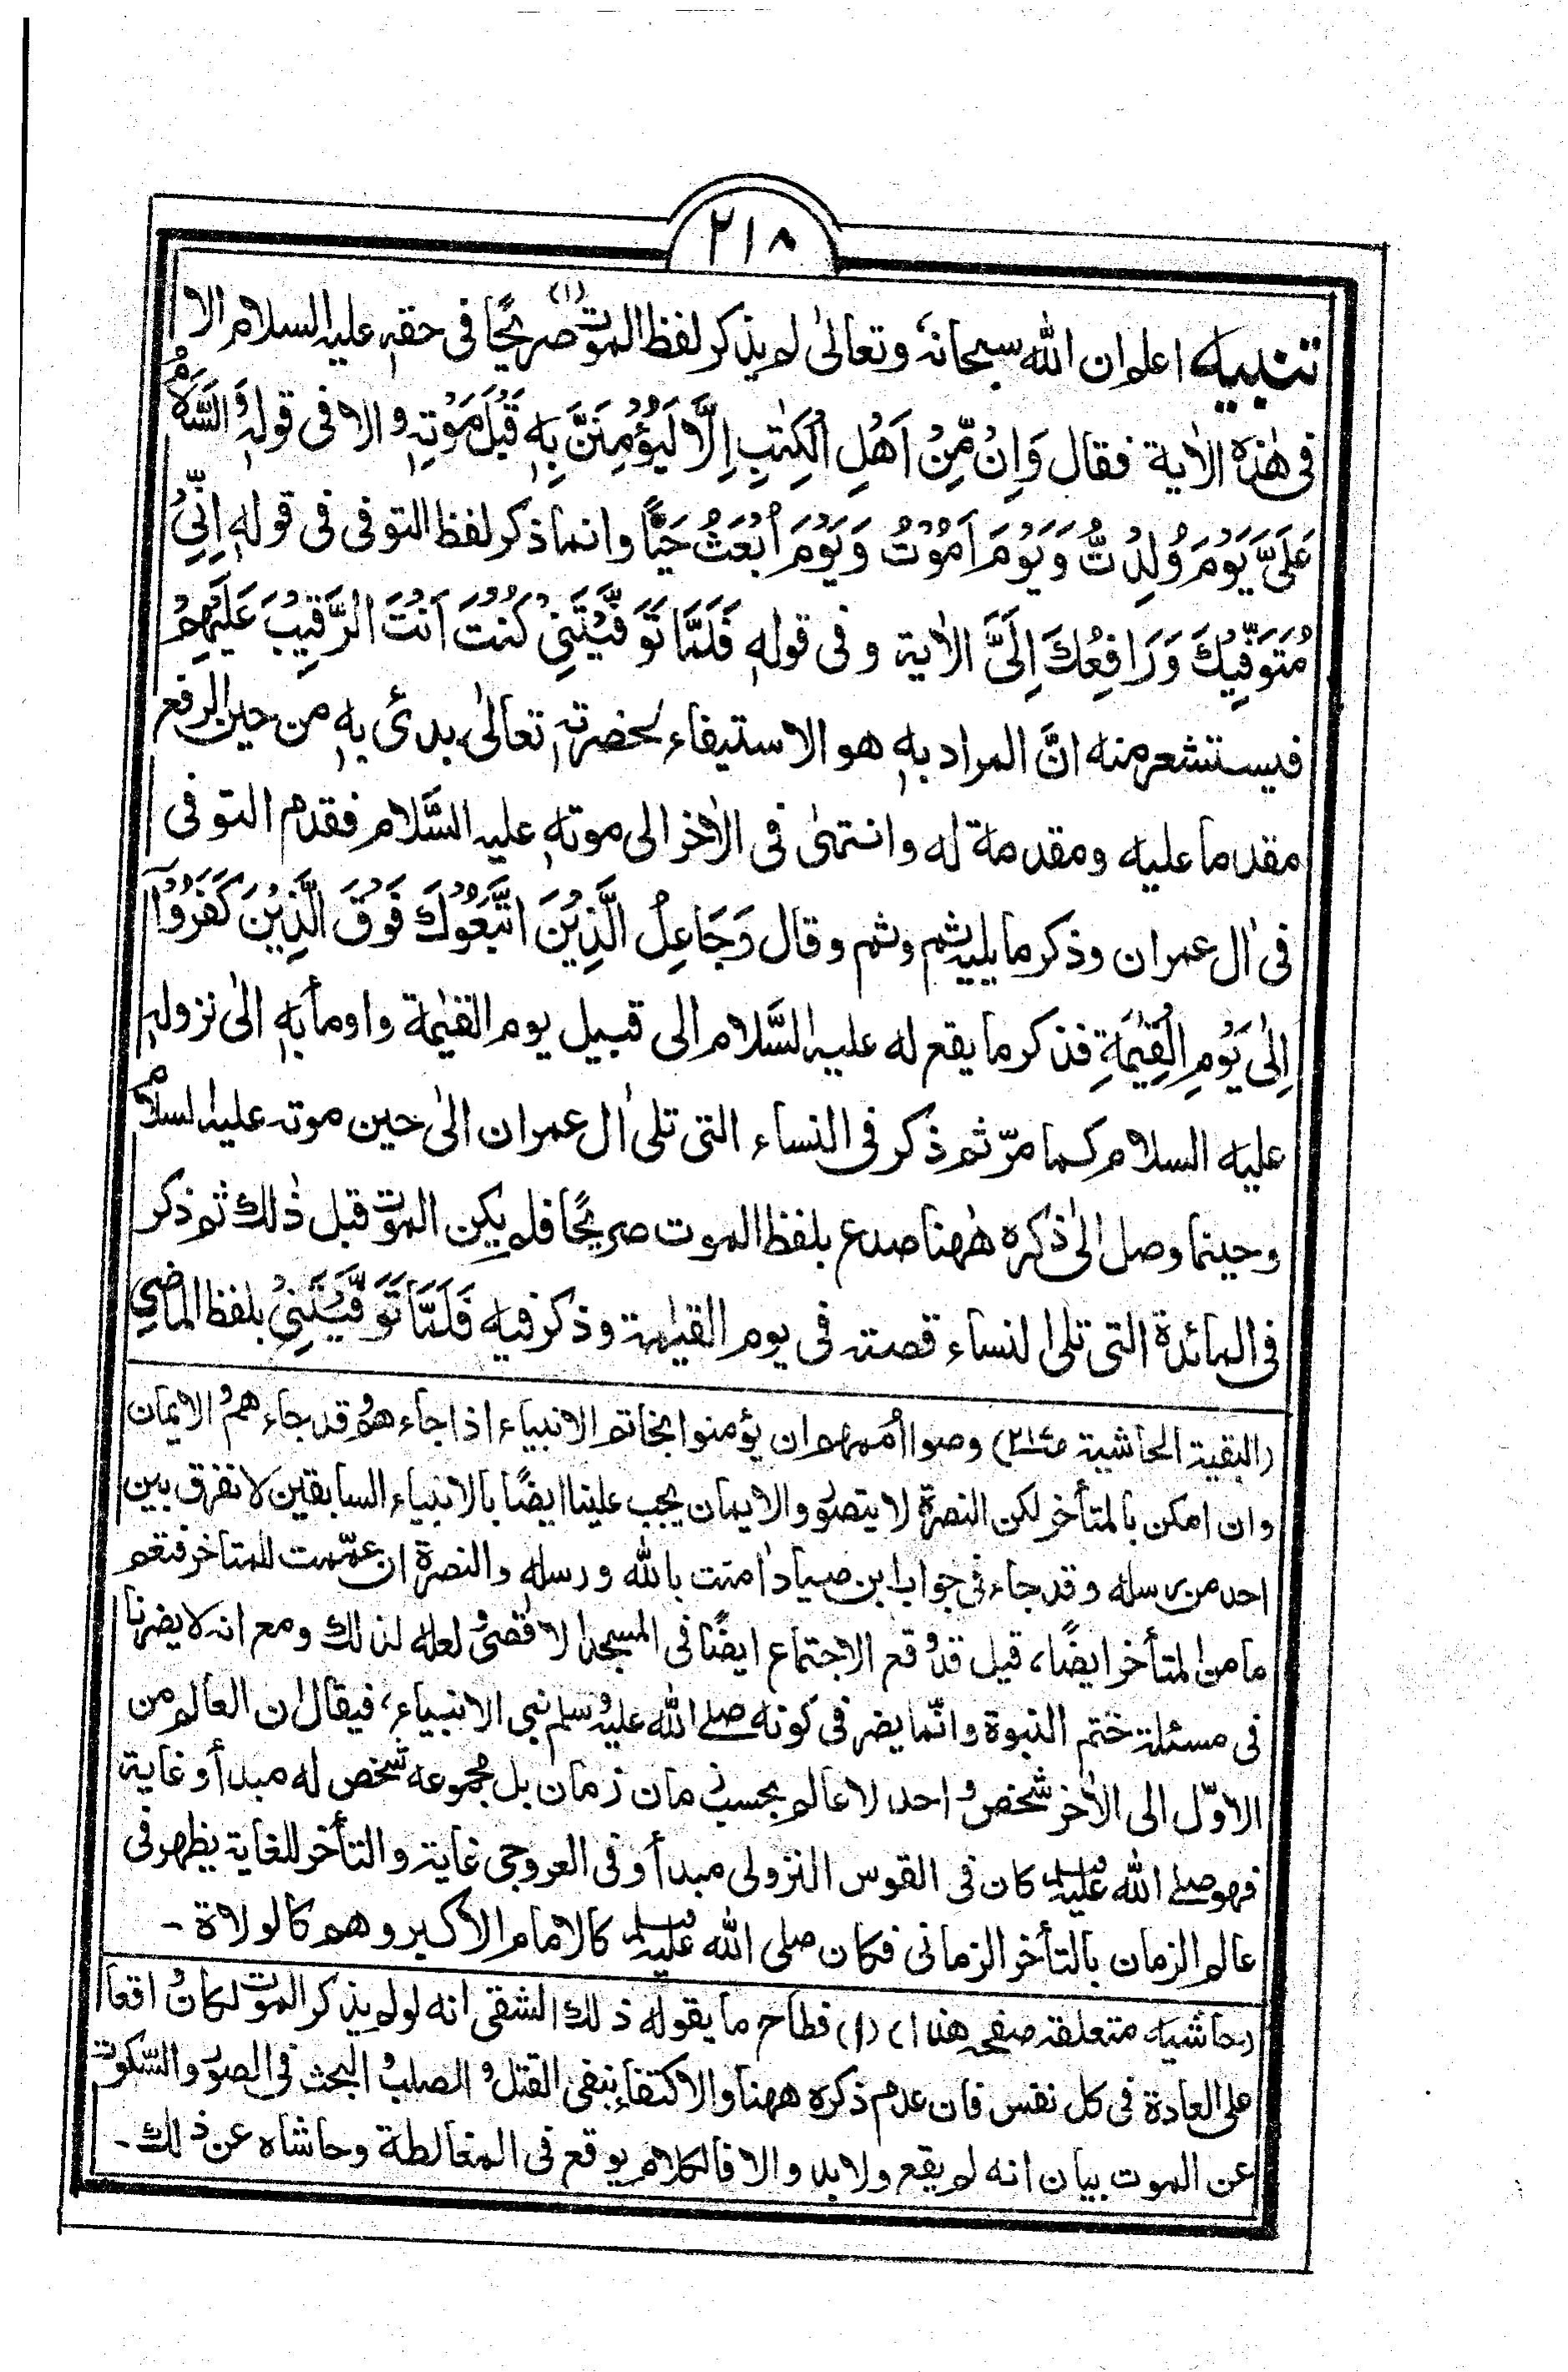 ٢١٨
تنبيه اعلم ان الله سبحانهٗ وتعالىٰ لم يذكر لفظ الموت (١) صريحًا فى حقهٖ عليه السلام الا
فى هٰذه الاٰية فقال وَاِنْ مِّنْ اَهْلِ الْكِتٰبِ اِلَّا لَيُؤْمِنَنَّ بِهٖ قَبْلَ مَوْتِهٖ والا فى قولهٖ وَالسَّلَامُ
عَلَىَّ يَوْمَ وُلِدْتُّ وَيَوْمَ اَمُوْتُ وَيَوْمَ اُبْعَثُ حَيًّا وانما ذكر لفظ التوفى فى قولهٖ اِنِّىْ
مُتَوَفِّيْكَ وَرَافِعُكَ اِلَىَّ الاٰية وفى قولهٖ فَلَمَّا تَوَفَّيْتَنِىْ كُنْتَ اَنْتَ الرَّقِيْبَ عَلَيْهِمْ
فيستشعر منه انَّ المراد بهٖ هو الاستيفاء لحضرتهٖ تعالىٰ، بدئ بهٖ من حين الرفع
مقدما عليه ومقدمة له وانتهىٰ فى الاٰخر الى موتهٖ عليه السَّلام فقدم التوفى
فى اٰل عمران وذكر ما يليه ثم وثم وقال وَجَاعِلُ الَّذِيْنَ اتَّبَعُوْكَ فَوْقَ الَّذِيْنَ كَفَرُوْٓا
اِلٰى يَوْمِ الْقِيٰمَةِ فذكر ما يقع له عليه السَّلام الى قبيل يوم القيٰمة واومأ بهٖ الىٰ نزولهٖ
عليه السلام كما مرّ ثم ذكر فى النساء التى تلى اٰل عمران الىٰ حين موته عليه السلام
وحينما وصل الىٰ ذكره هٰهنا صدع بلفظ الموت صريحًا فلم يكن الموت قبل ذٰلك ثم ذكر
فى المائدة التى تلى النساء قصته فى يوم القيٰمة وذكر فيه فَلَمَّا تَوَفَّيْتَنِىْ بلفظ الماضى
(البقية الحاشية ص٢١٧) وصوا أممهم ان يؤمنوا بخاتم الانبياء اذا جاء هم وقد جاء هم والايمان
وان امكن بالمتأخر لكن النصرة لا يتصور والايمان يجب علينا ايضًا بالانبياء السابقين لا نفرق بين
احد من رسله وقد جاء فى جواب ابن صياد اٰمنت بالله ورسله والنصرة ان عمّمت للمتاخر فتعم
ما من المتأخر ايضًا، قيل قد وقع الاجتماع ايضًا فى المسجد الاقصىٰ ولعله لذلك ومع انه لا يضرنا
فى مسئلة ختم النبوة وانّما يضر فى كونه صلے الله عليه وسلم نبى الانبياء، فيقال ان العالم من
الاوّل الى الاٰخر شخص واحد، لا عالم بحسب زمان زمان بل مجموعه شخص له مبدأ وغاية
فهو صلے الله عليه وسلم كان فى القوس النزولى مبدأ وفى العروجى غاية والتأخر للغاية يظهر فى
عالم الزمان بالتأخر الزمانى فكان صلى الله عليه وسلم كالامام الاكبر وهم كالولاة -
(حاشيه متعلقه صفحہ هذا) (١) فطاح ما يقوله ذلك الشقى انه لو لم يذكر الموت لكان واقعا
على العادة فى كل نفس فان عدم ذكره ههنا والاكتفاء بنفى القتل والصلب والبحث فى الصور والسّكوت
عن الموت بيان انه لم يقع ولابد والا فالكلام يوقع فى المغالطة وحاشاه عن ذلك -